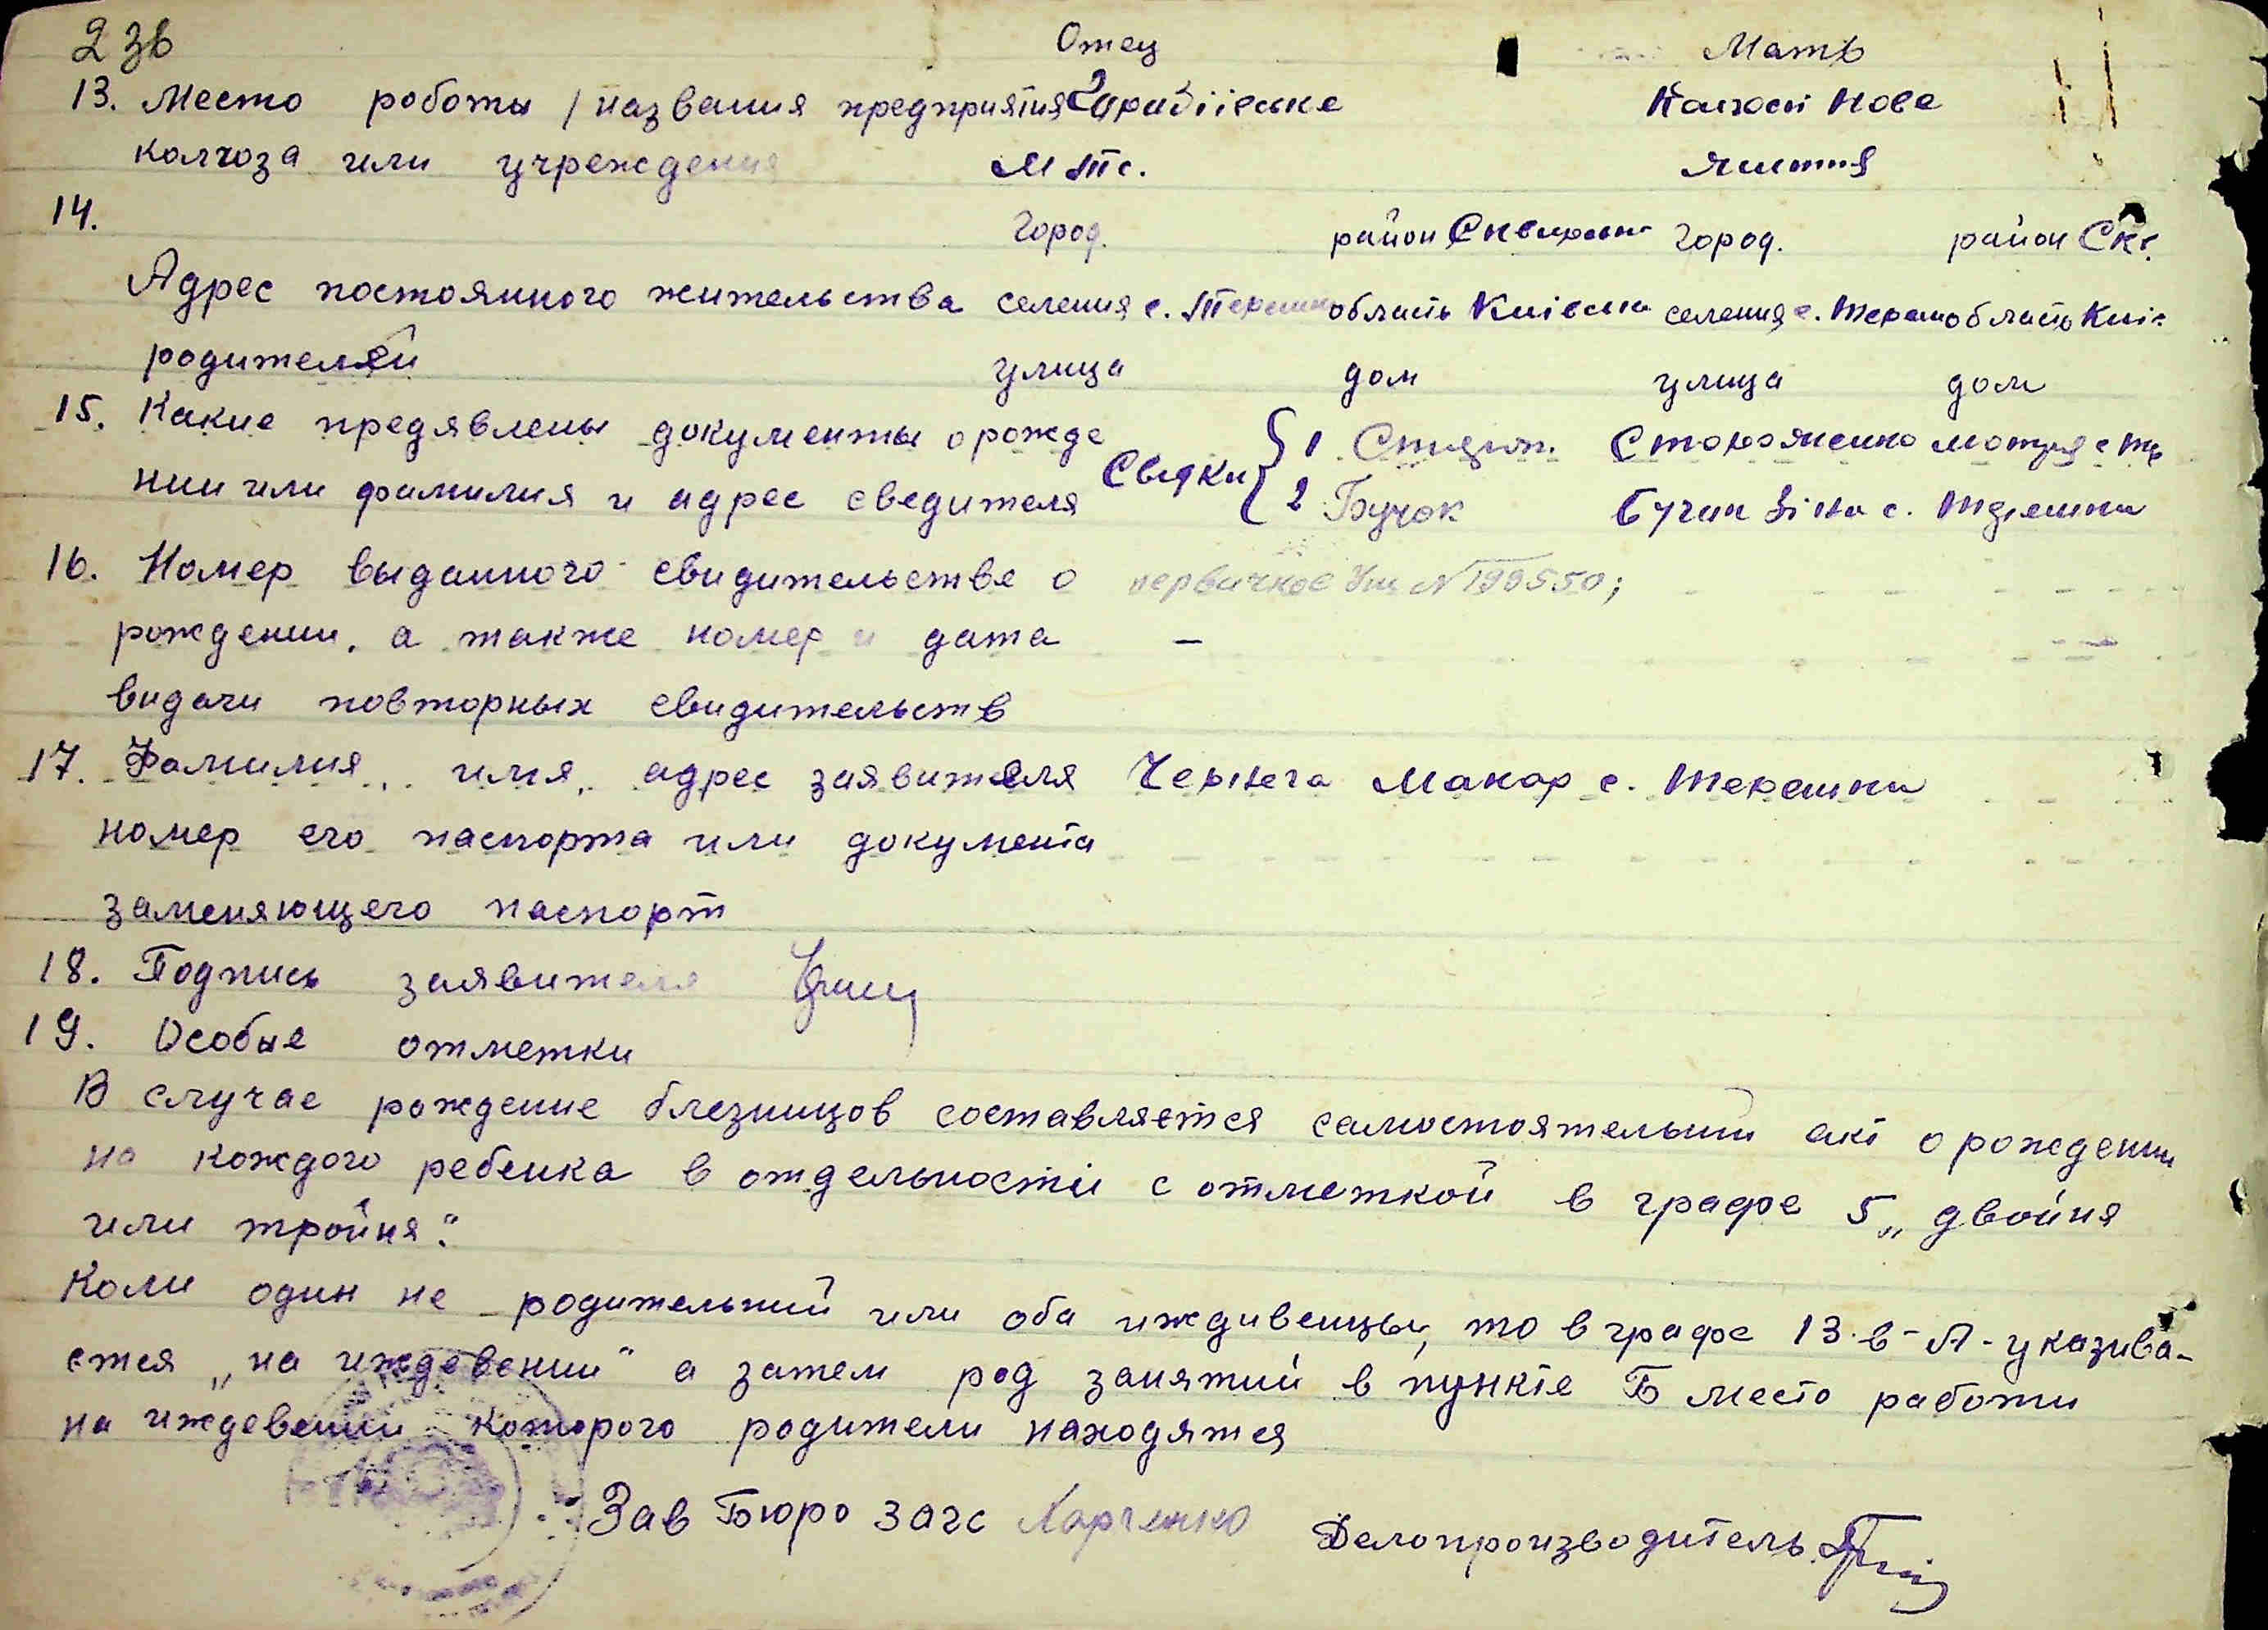 2 зв
Отец Мать
13. Место роботы / названия предприятия Колхосп Нове
колхоза или учреждения М тс. життя
14. Город. район Сквирськ город. район Скв.
Адрес постоянного жительства селения с. Терешки область Київська селения с. Тереш область Киї:
родителей улица дом улица дом
15. Какие предявлены документы о рожде Свідки 1 Стороженко Мотря с Тер
нии или фамилия и адрес сведителя 2 Бучок Бучак Зіна с. Терешки
16. Номер выданного свидительстве о первичное № 199550;
рождении, а также номер и дата –
видачи повторных свидительств
17. Фамилия, имя, адрес заявителя Чернега Макар с. Терешки
номер его паспорта или документа
заменяющего паспорт
18. Подпись заявителя
19. Особые отметки
В случае рождение блезницов составляется самостоятельний акт о рождении
на кождого ребенка в отдельности с отметкой в графе 5 „двойня
или тройня".
Коли один не родительний или оба иждивенцы, то в графе 13-в-А-указива-
ется „на иждевении" а затем род занятий в пункте Б место работи
на иждевении которого родители находятся
Зав Бюро загс Харченко Делопроизводитель